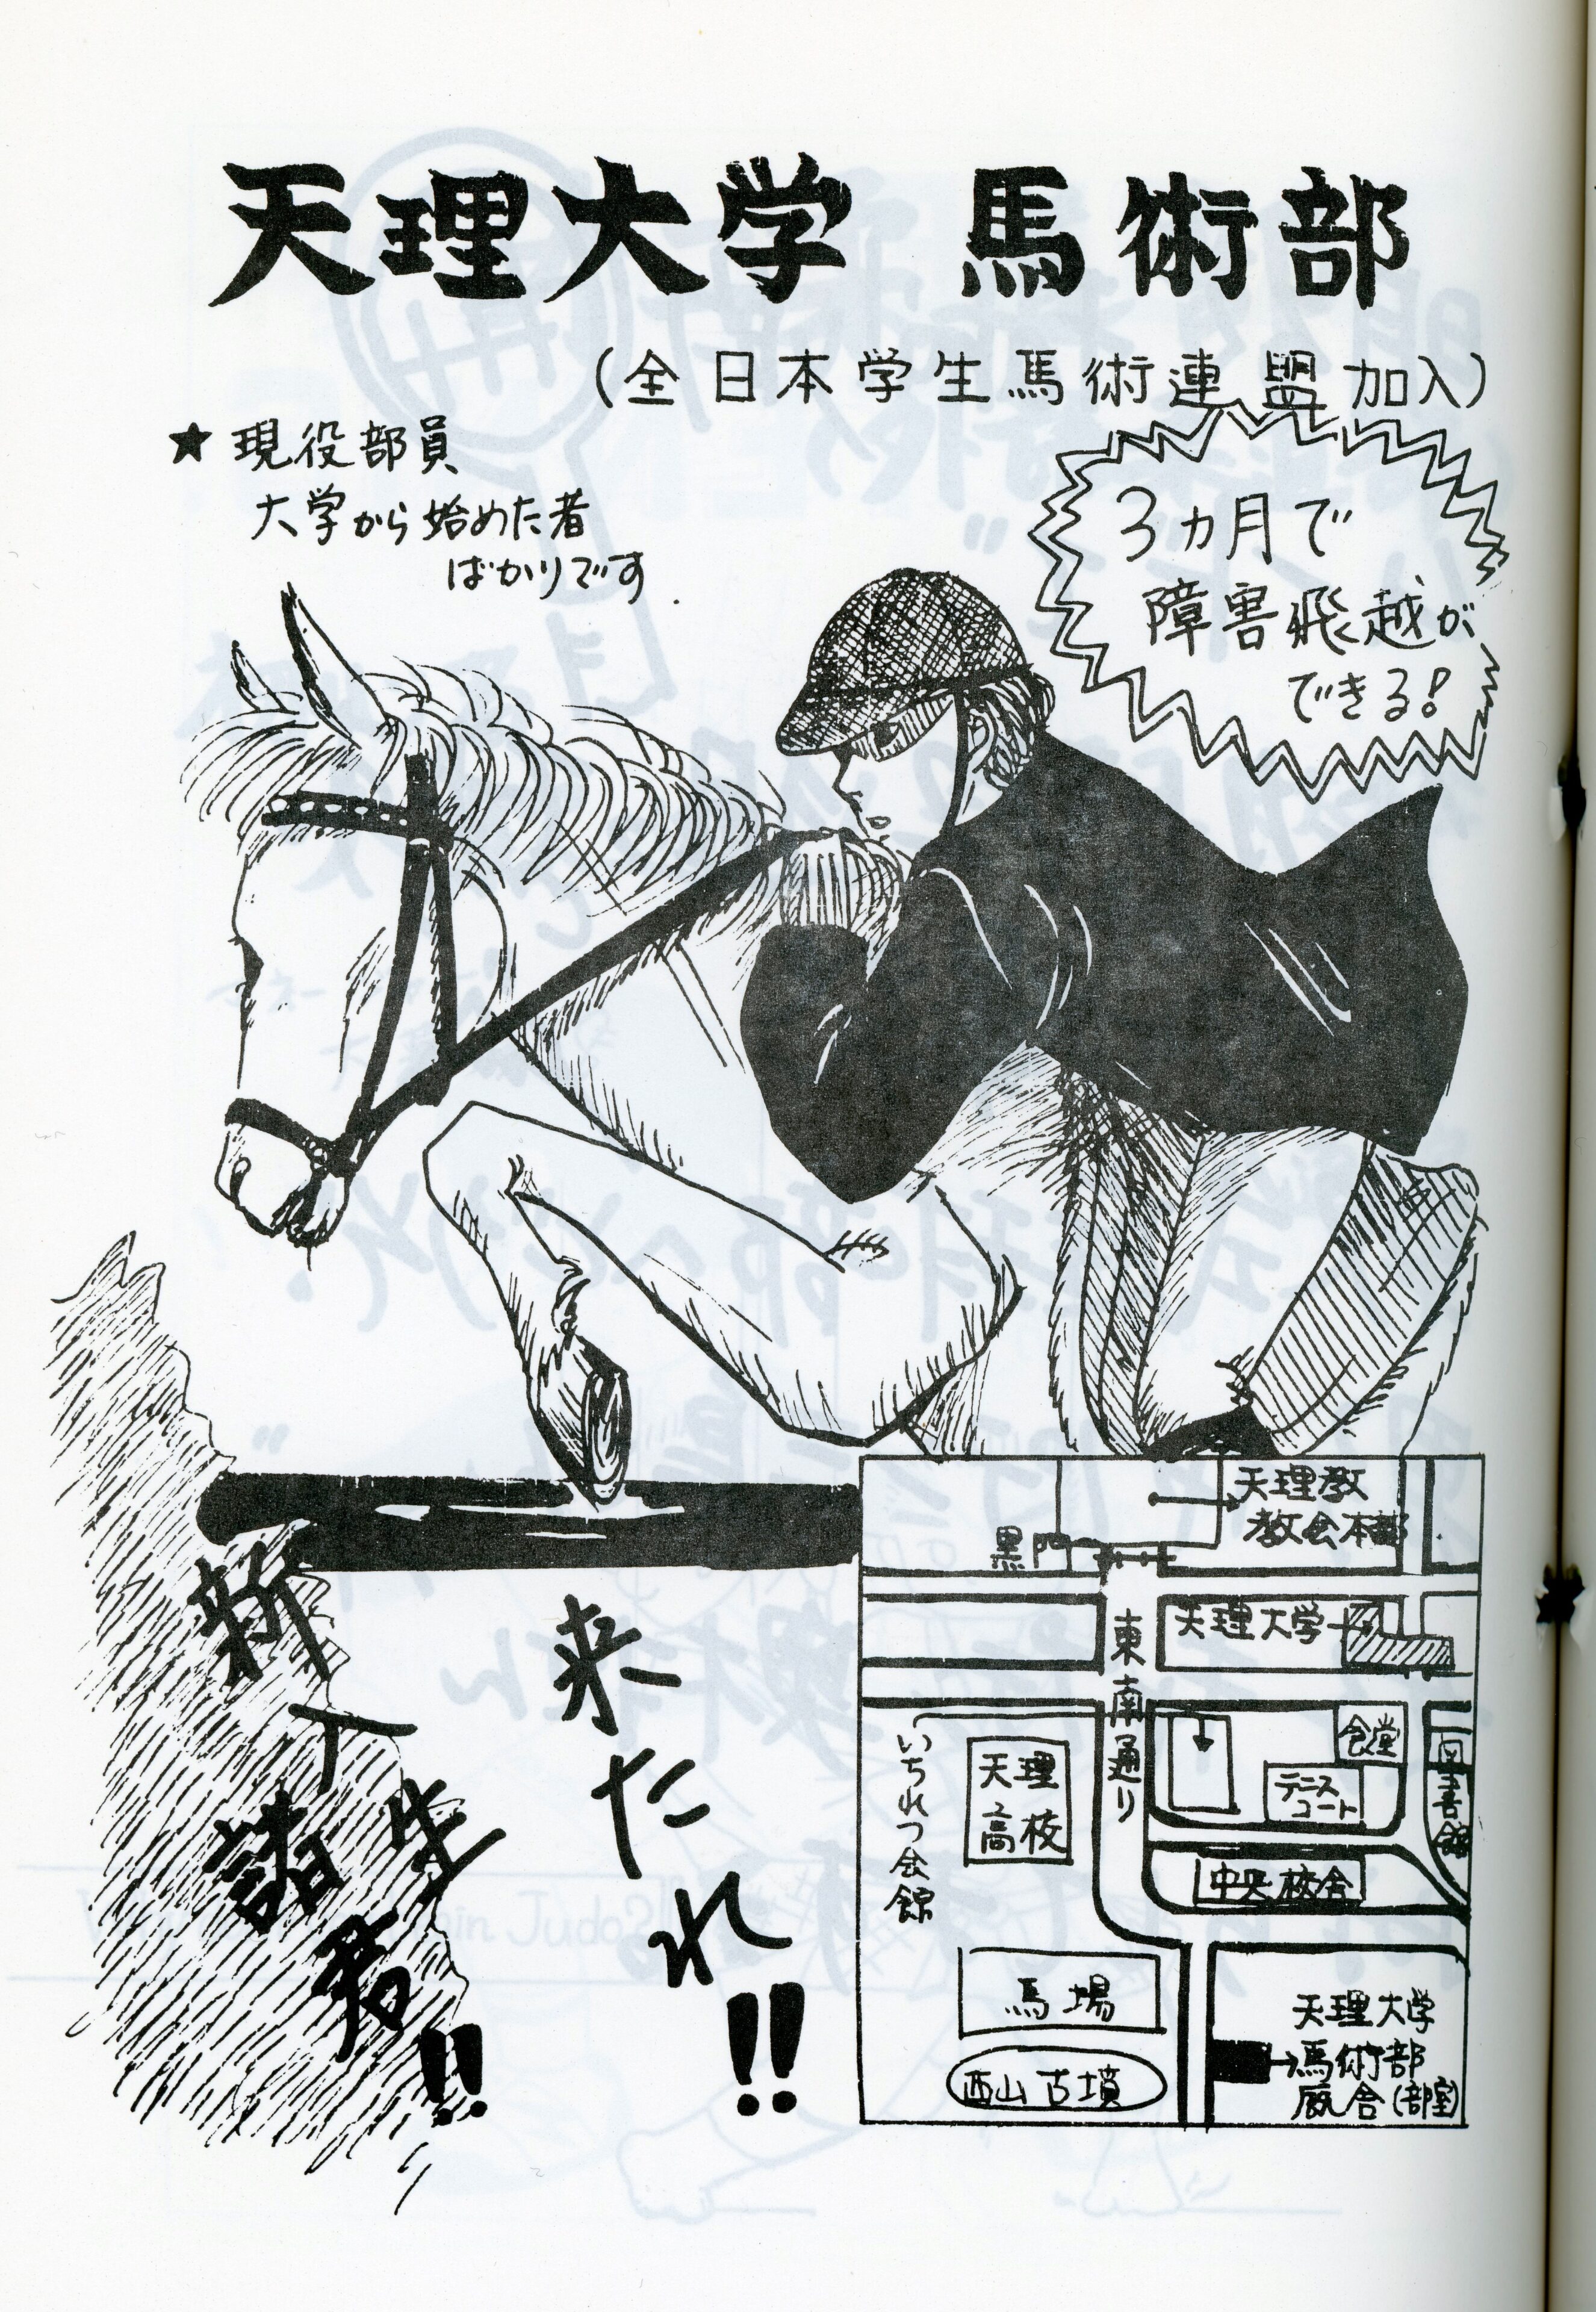 天理大学 馬術部
(全日本学生馬術連盟加入)
★ 現役部員
大学から始めた者
ばかりです.
3ヵ月で
障害飛越が
できる!
新入生
諸君!!
来たれ!!
天理教
教会本部
黒門
天理大学
東南通り
食堂
図書館
テニス
コート
いちれつ会館
天理
高校
中央校舎
馬場
西山古墳
天理大学
馬術部
厩舎(部室)
in Judo?